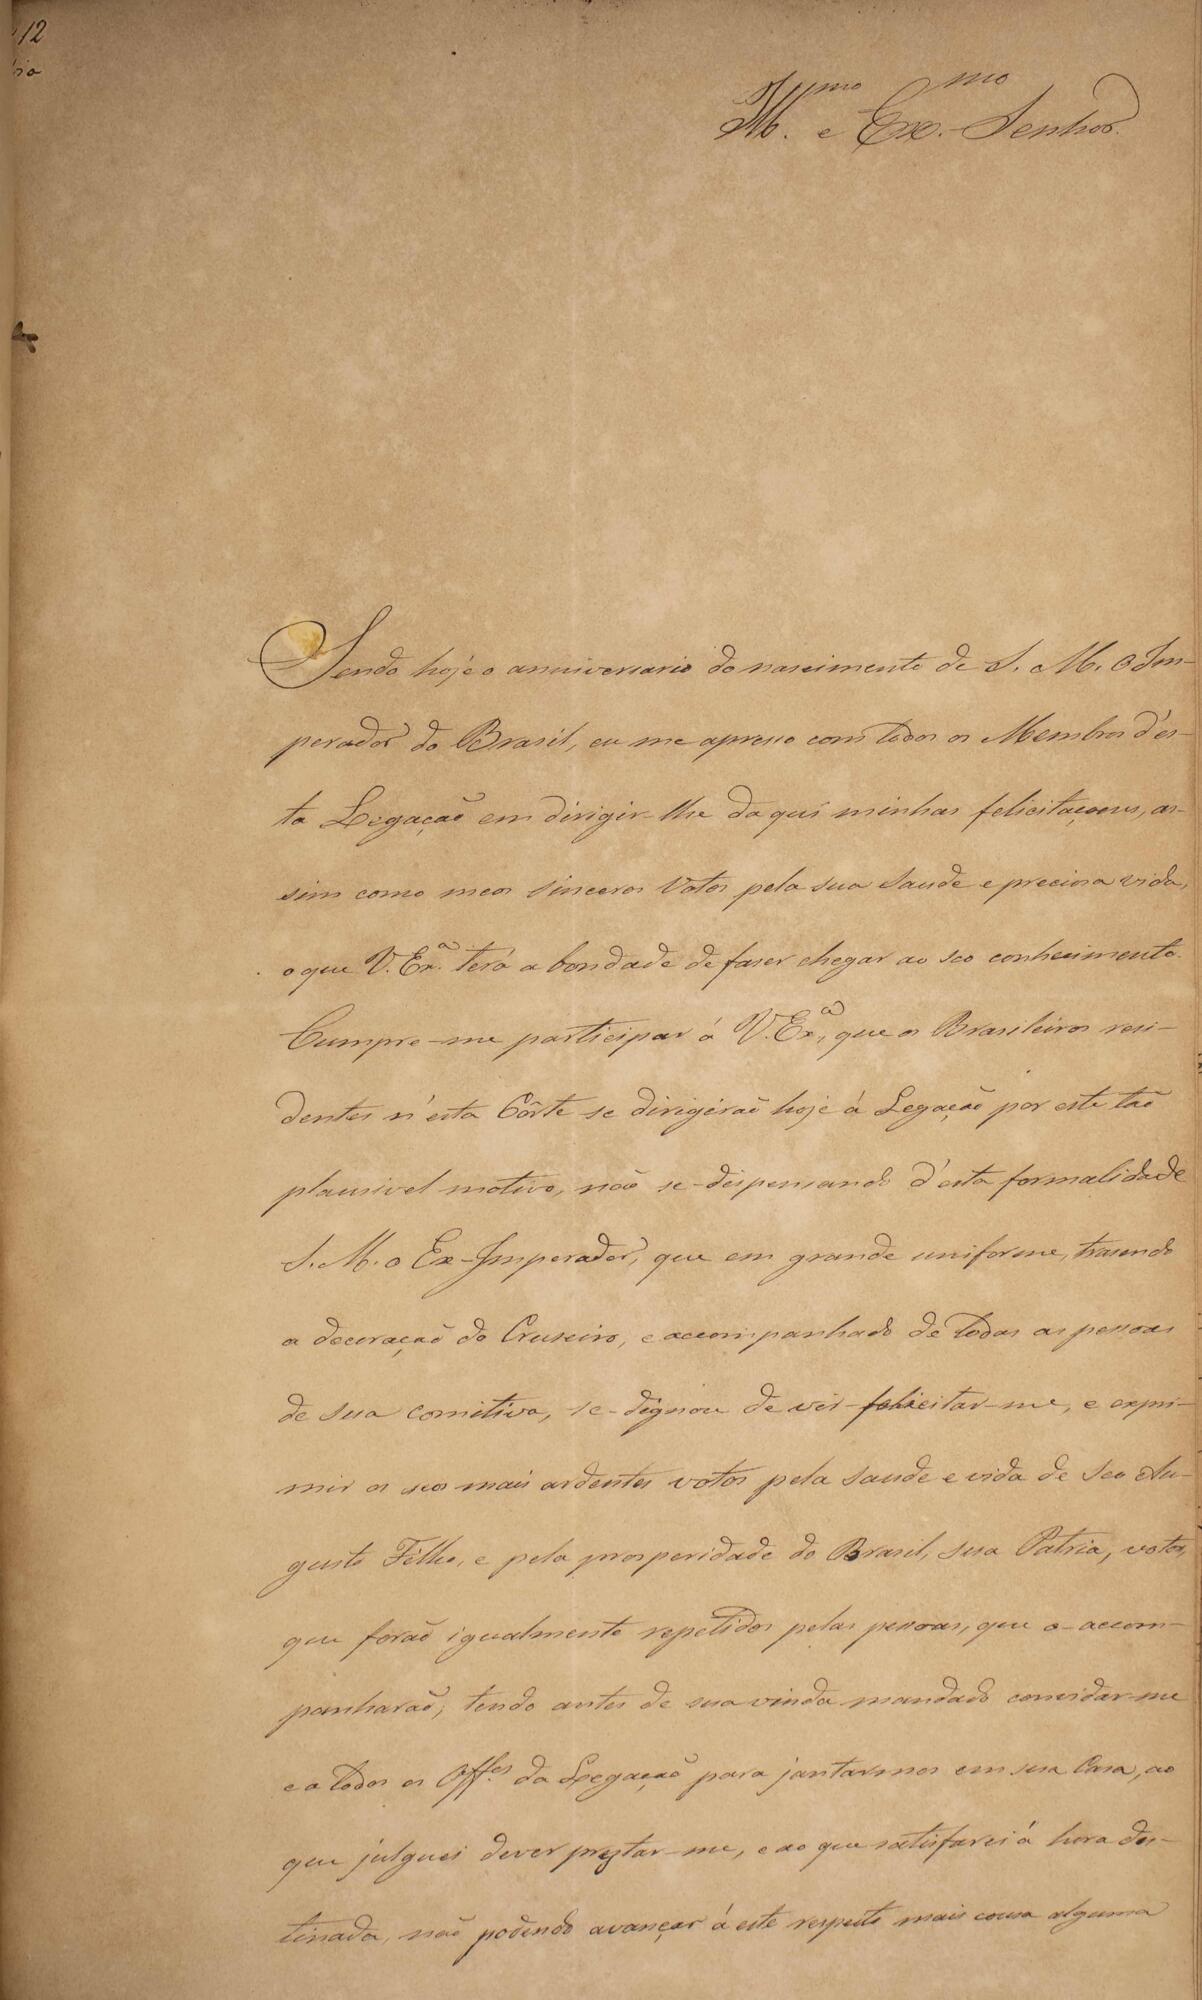 12
Ill.mo e Ex.mo Senhor.
Sendo hoje o anniversario do nascimento de S. M. O Im-
perador do Brasil, eu me apresso com todos os Membros d'es-
ta Legação em dirigir-lhe da qui minhas felicitaçoens, as-
sim como meos sinceros votos pela sua saude e preciosa vida,
o que V. Ex.a terá a bondade de faser chegar ao seo conhecimento.
Cumpre-me participar á V. Ex.a, que os Brasileiros resi-
dentes n'esta Côrte se dirigirão hoje á Legação por este tão
plausivel motivo, não se-dispensando d'esta formalidade
S. M. o Ex-Imperador, que em grande uniforme, trasendo
a decoração do Cruseiro, e accompanhado de todas as pessoas
de sua comitiva, se-dignou de vir felicitar-me, e expri-
mir os seos mais ardentes votos pela saude e vida de Seo Au-
gusto Filho, e pela prosperidade do Brasil, sua Patria, votos,
que forão igualmente repetidos pelas pessoas, que o-accom-
panharão; tendo antes de sua vinda mandado convidar-me
e a todos os Off.es da Legação para jantarmos em sua Casa, ao
que julguei dever prestar-me, e ao que satisfarei á hora des-
tinada, não podendo avançar á este respeito mais cousa alguma